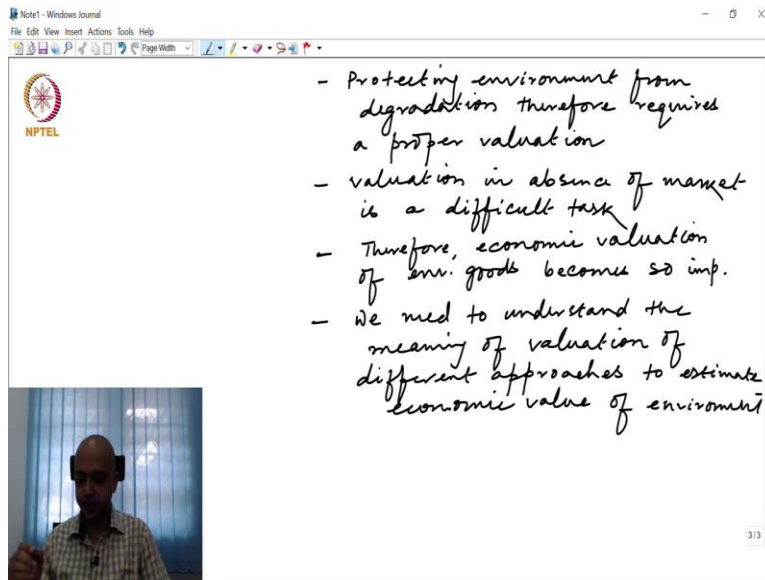 Note1 - Windows Journal
File Edit View Insert Actions Tools Help
Page Width
NPTEL
- Protecting environment from
degradation therefore requires
a proper valuation
- valuation in absence of market
is a difficult task
- Therefore, economic valuation
of env. goods becomes so imp.
- We need to understand the
meaning of valuation of
different approaches to estimate
economic value of enviroment
3/3